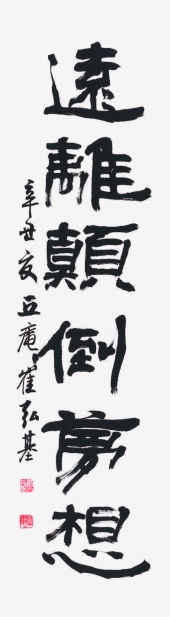 遠離顛倒夢想
辛丑夏 丘庵 崔弘基